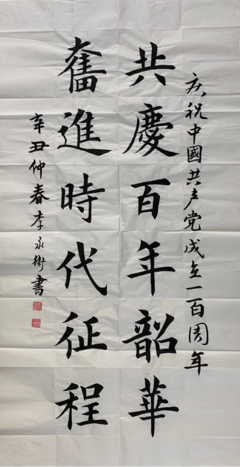 庆祝中國共产党成立一百周年
共慶百年韶華
奮進時代征程
辛丑仲春李永衔書